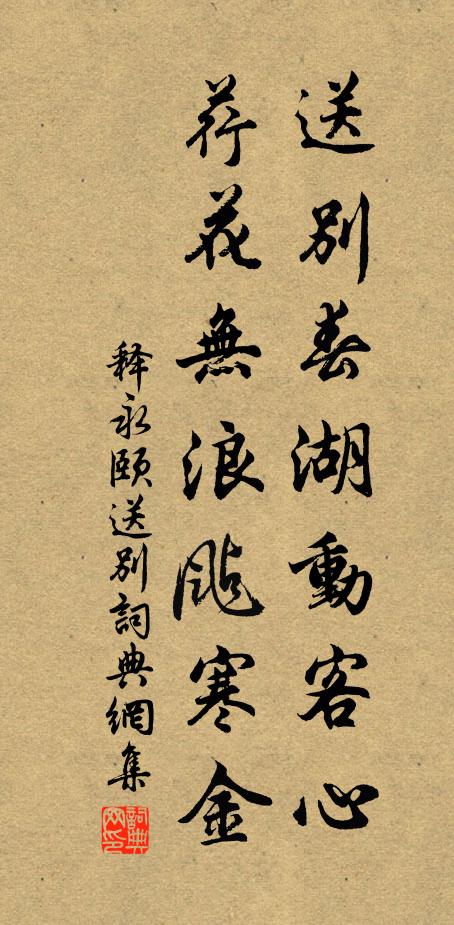 送別春湖動客心
荷花無浪颭寒金
释永頤送別詞典網集
詞典网印